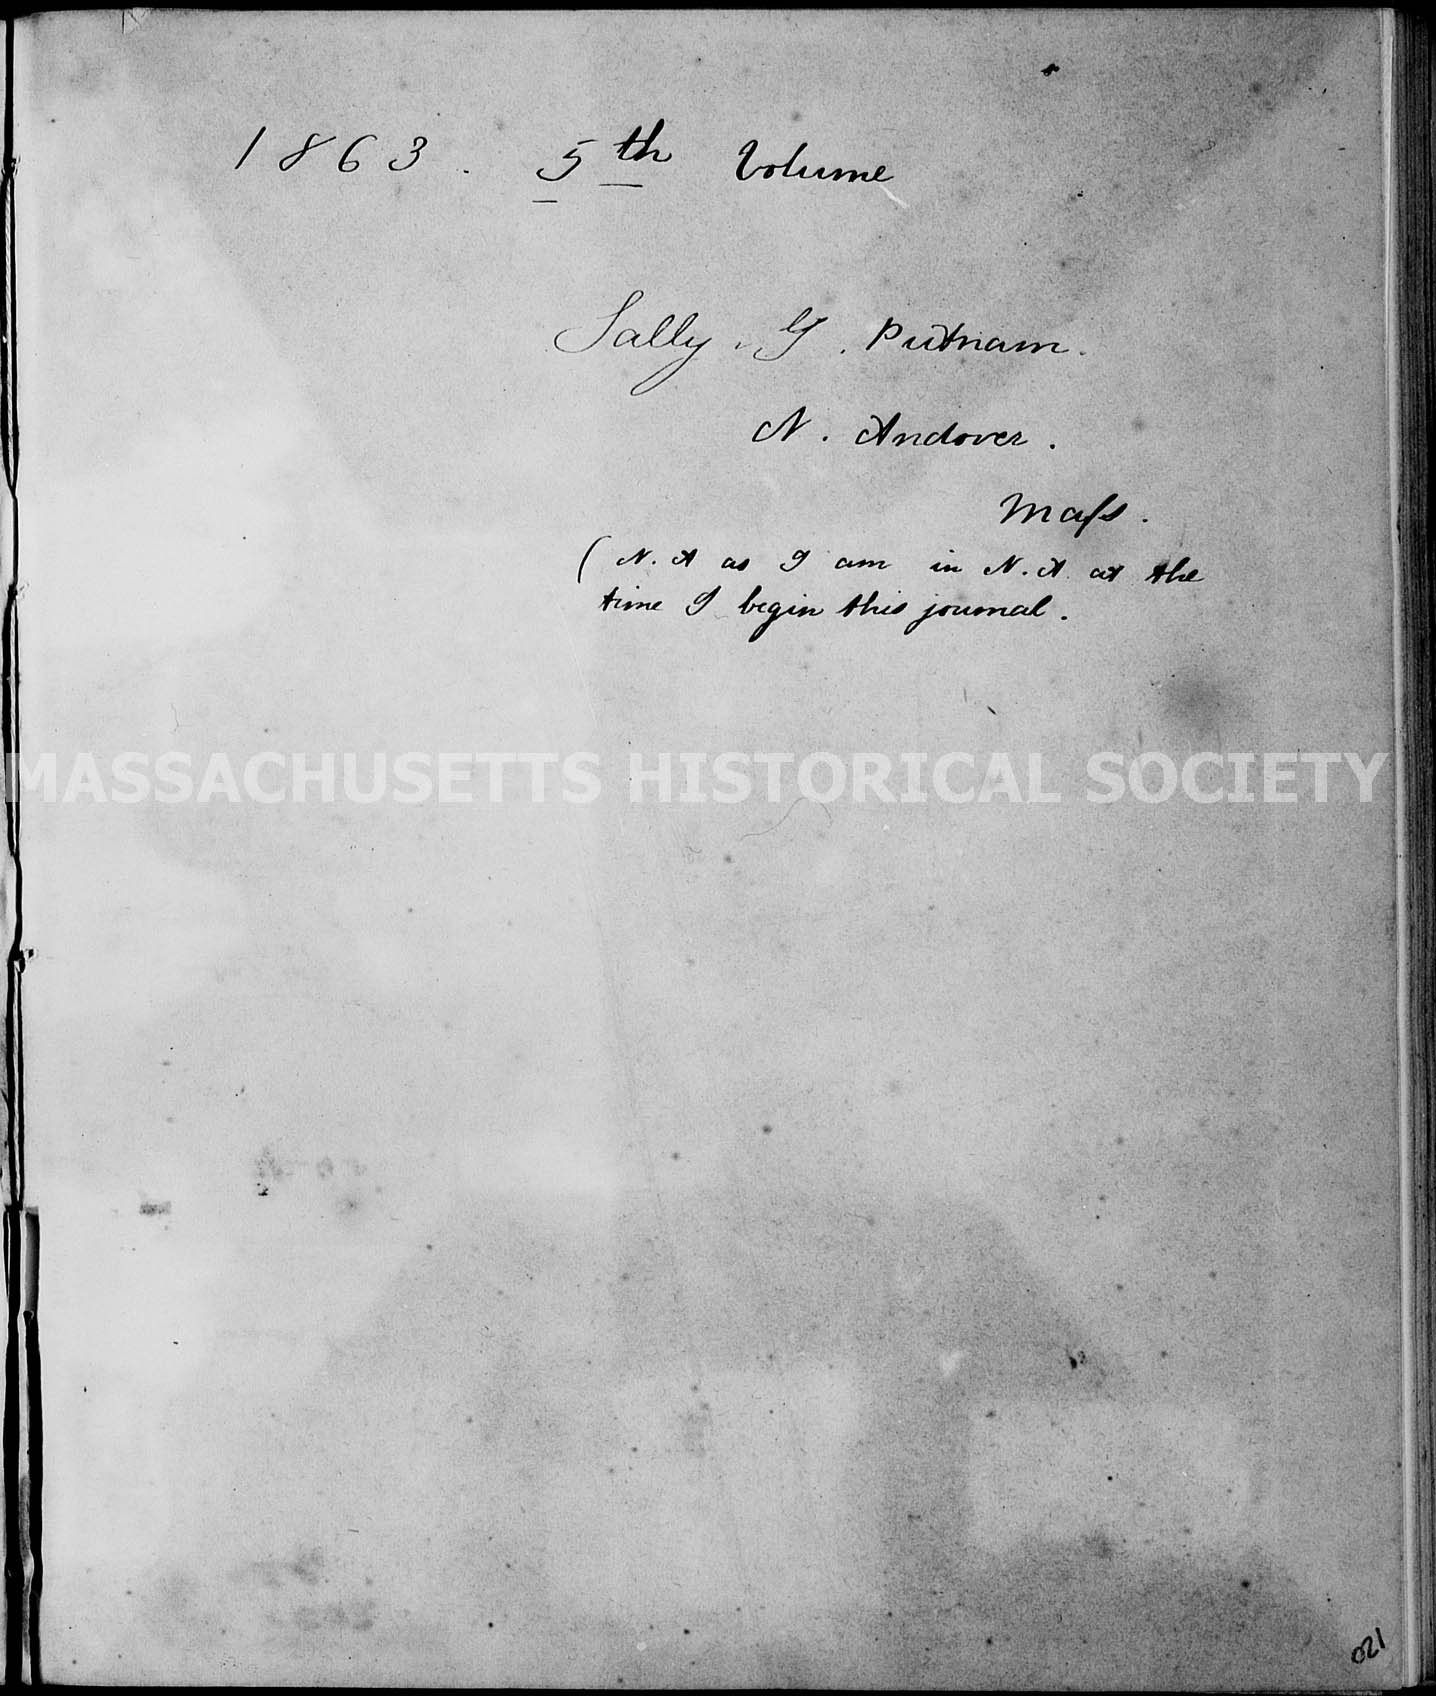 1863. 5th Volume
Sally. G. Putnam.
N. Andover.
Maſs.
(N. A as I am in N. A. at the
time I begin this journal.
MASSACHUSETTS HISTORICAL SOCIETY